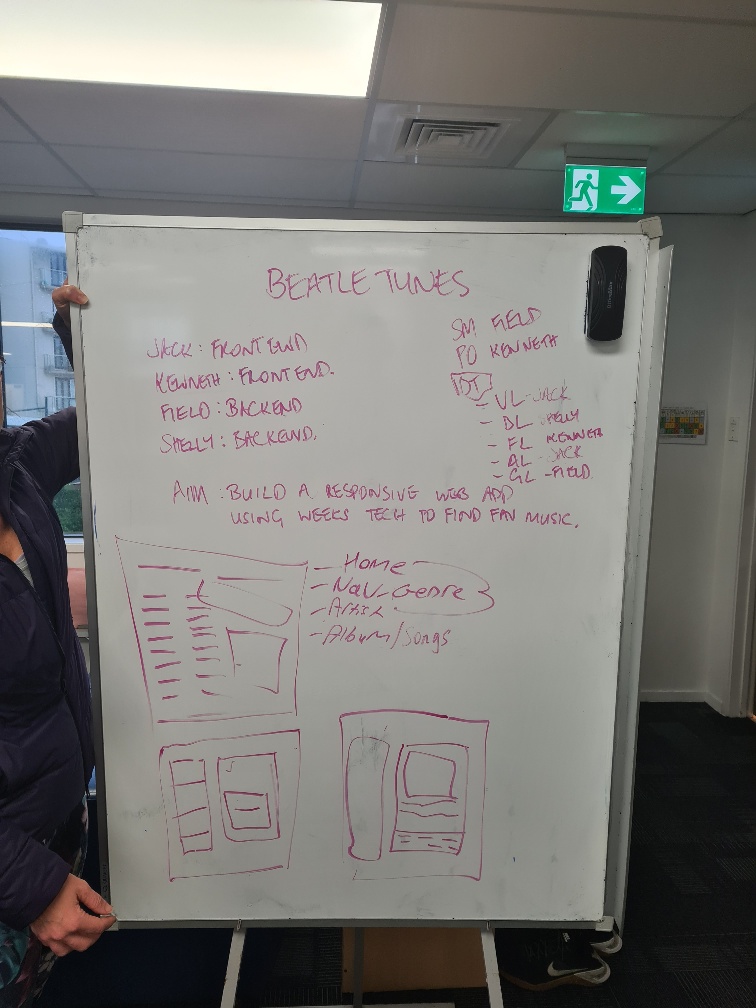 BEATLE TUNES
JACK: FRONTEND
KENNETH: FRONTEND.
FIELD: BACKEND
SHELLY: BACKEND.
SM FIELD
PO KENNETH
- VL - JACK
- BL - SHELLY
- FL KENNETH
- AL - JACK
- GL - FIELD
AIM: BUILD A RESPONSIVE WEB APP
USING WEEKS TECH TO FIND FAV MUSIC.
- Home
- Nav - Genre
- Artist
- Album/Songs